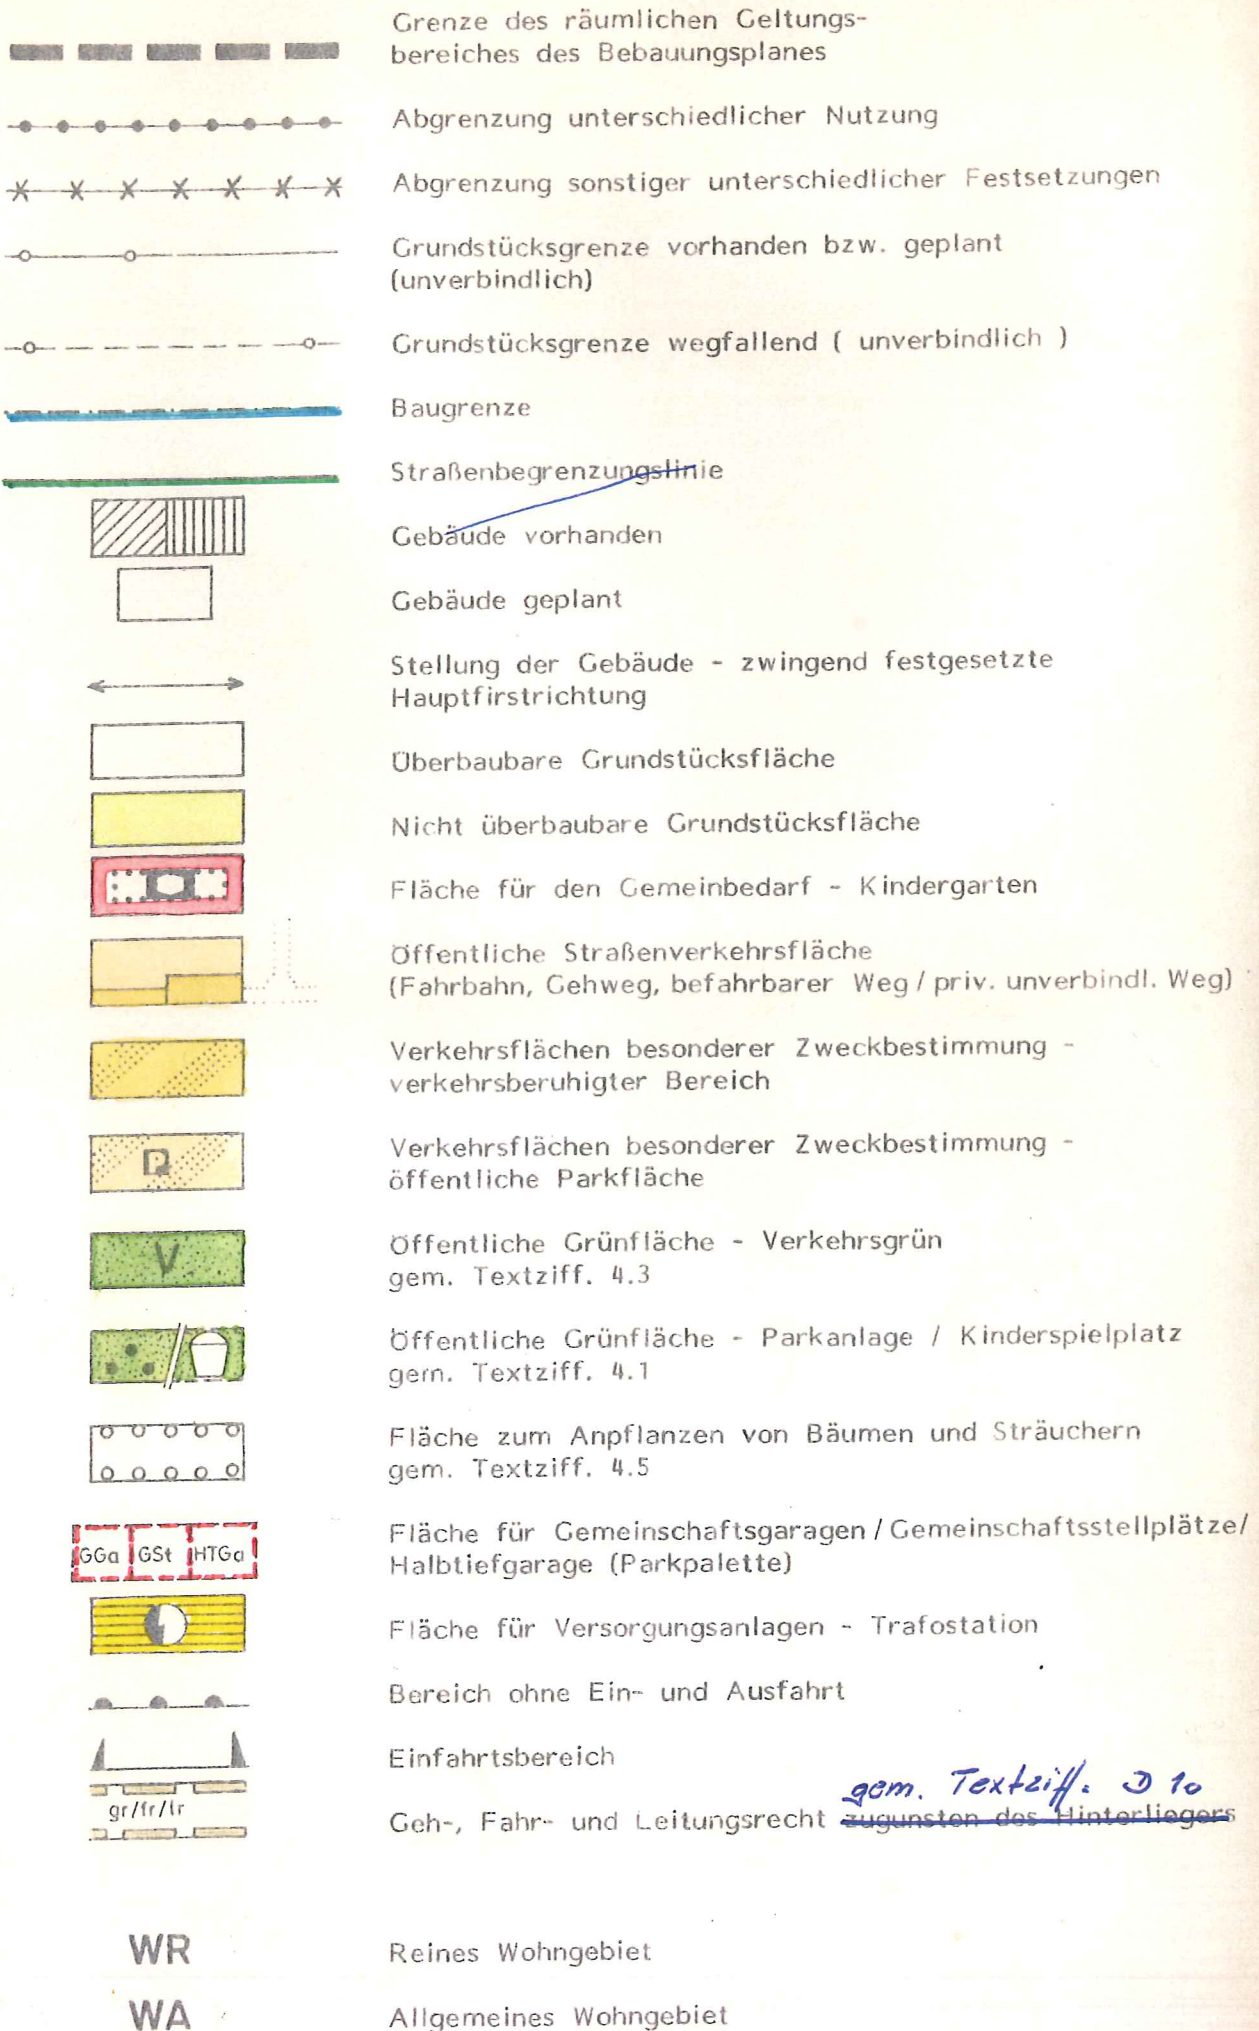 Grenze des räumlichen Geltungs-
bereiches des Bebauungsplanes
Abgrenzung unterschiedlicher Nutzung
Abgrenzung sonstiger unterschiedlicher Festsetzungen
Grundstücksgrenze vorhanden bzw. geplant
(unverbindlich)
Grundstücksgrenze wegfallend ( unverbindlich )
Baugrenze
Straßenbegrenzungslinie
Gebäude vorhanden
Gebäude geplant
Stellung der Gebäude - zwingend festgesetzte
Hauptfirstrichtung
Überbaubare Grundstücksfläche
Nicht überbaubare Grundstücksfläche
Fläche für den Gemeinbedarf - Kindergarten
Öffentliche Straßenverkehrsfläche
(Fahrbahn, Gehweg, befahrbarer Weg / priv. unverbindl. Weg)
Verkehrsflächen besonderer Zweckbestimmung -
verkehrsberuhigter Bereich
P
Verkehrsflächen besonderer Zweckbestimmung -
öffentliche Parkfläche
V
Öffentliche Grünfläche - Verkehrsgrün
gem. Textziff. 4.3
Öffentliche Grünfläche - Parkanlage / Kinderspielplatz
gem. Textziff. 4.1
Fläche zum Anpflanzen von Bäumen und Sträuchern
gem. Textziff. 4.5
GGa GSt HTGa
Fläche für Gemeinschaftsgaragen / Gemeinschaftsstellplätze/
Halbtiefgarage (Parkpalette)
Fläche für Versorgungsanlagen - Trafostation
Bereich ohne Ein- und Ausfahrt
Einfahrtsbereich
gem. Textziff. D 10
gr/fr/lr
Geh-, Fahr- und Leitungsrecht zugunsten des Hinterliegers
WR Reines Wohngebiet
WA Allgemeines Wohngebiet